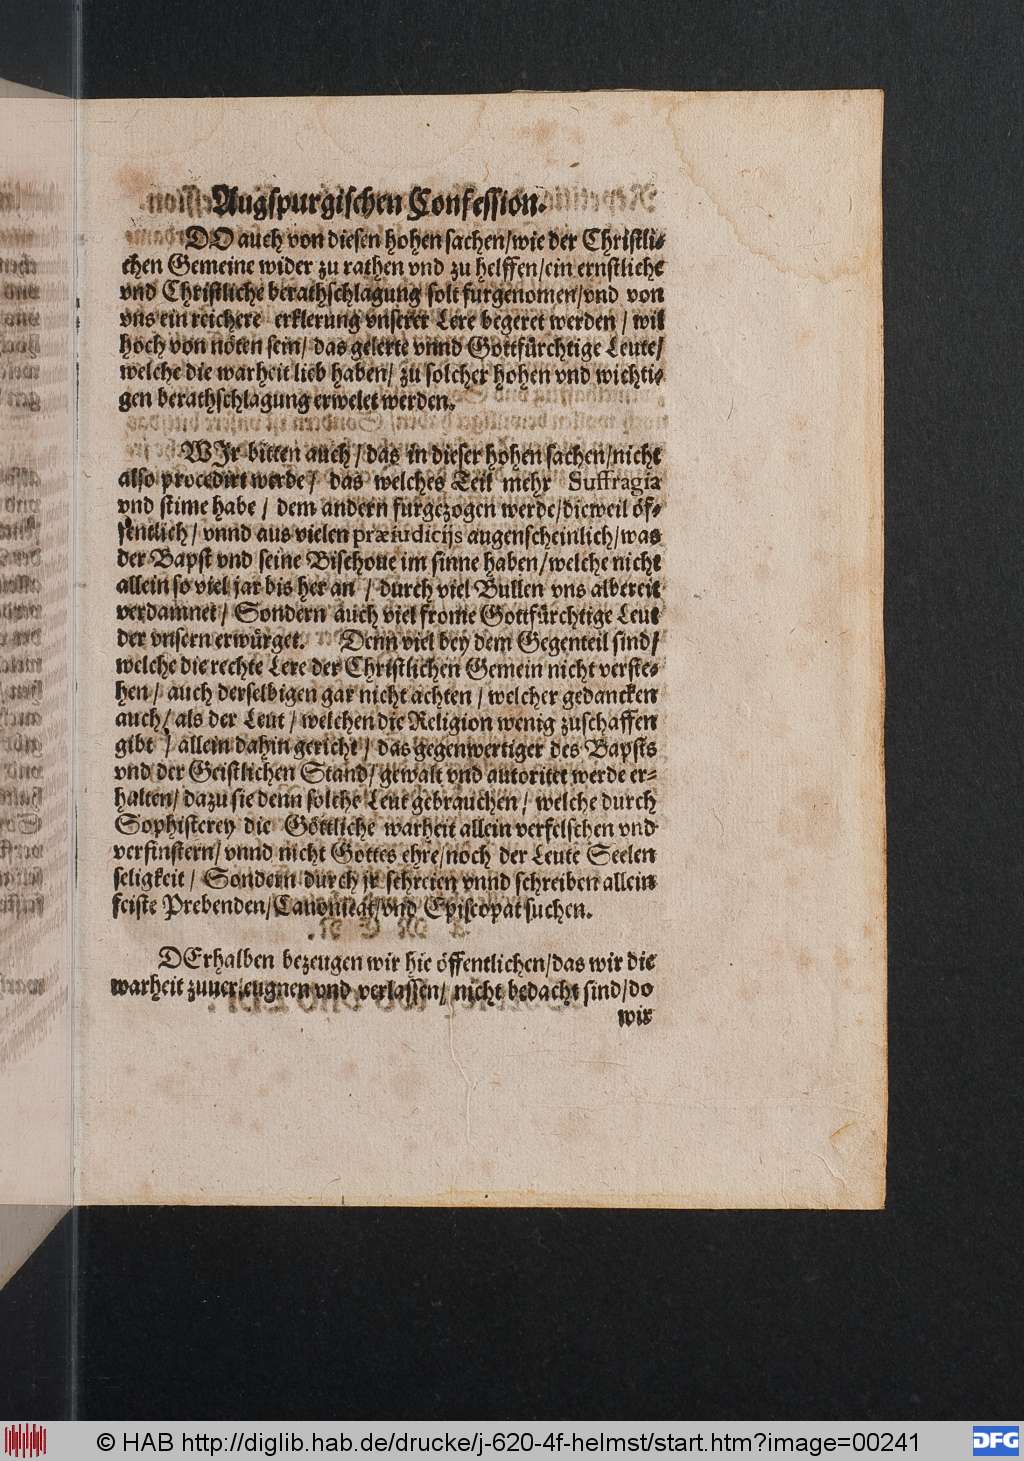 Augspurgischen Confession.
DO auch von diesen hohen sachen/wie der Christli-
chen Gemeine wider zu rathen vnd zu helffen/ein ernstliche
vnd Christliche berathschlagung solt fürgenomen/vnd von
vns ein reichere erklerung vnserer Lere begeret werden / wil
hoch von nöten sein/ das gelerte vnnd Gottfürchtige Leute/
welche die warheit lieb haben/ zu solcher hohen vnd wichti-
gen berathschlagung erwelet werden.
WIr bitten auch / das in dieser hohen sachen/nicht
also procedirt werde/ das welches Teil mehr Suffragia
vnd stime habe / dem andern fürgezogen werde/dieweil öf-
fentlich/ vnnd aus vielen præiudicijs augenscheinlich/was
der Bapst vnd seine Bischoue im sinne haben/welche nicht
allein so viel jar bis her an / durch viel Bullen vns albereit
verdamnet/ Sondern auch viel frome Gottfürchtige Leut
der vnsern erwürget. Denn viel bey dem Gegenteil sind/
welche die rechte Lere der Christlichen Gemein nicht verste-
hen/ auch derselbigen gar nicht achten / welcher gedancken
auch/ als der Leut / welchen die Religion wenig zuschaffen
gibt / allein dahin gericht/ das gegenwertiger des Bapsts
vnd der Geistlichen Stand/ gewalt vnd autoritet werde er-
halten/ dazu sie denn solche Leut gebrauchen / welche durch
Sophisterey die Göttliche warheit allein verfelschen vnd
verfinstern/ vnnd nicht Gottes ehre/noch der Leute Seelen
seligkeit / Sondern durch jr schreien vnnd schreiben allein
feiste Prebenden/Canonicat/vnd Episcopat suchen.
DErhalben bezeugen wir hie öffentlichen/das wir die
warheit zuuerleugnen vnd verlassen/ nicht bedacht sind/do
wir
© HAB http://diglib.hab.de/drucke/j-620-4f-helmst/start.htm?image=00241
DFG